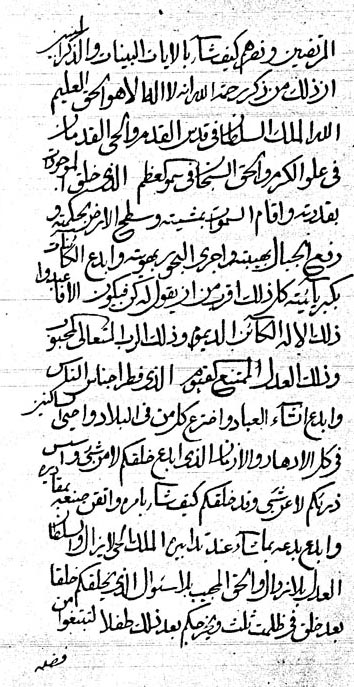 المرتضين ونصرهم كيف شاء بالايات البينات والذكر
ان ذلك من ذكر رحمة الله انه لا اله الا هو الحق العليم
الله الملك السلطان في قدس القدم والحي القدمان
في علو الكرم والحق السبحاني في سمو عظم الذي خلق الموجودات
بقدرته واقام السموات بمشيته وسطح الارض بحكمته و
رفع الجبال بهيبته واجرى البحور وابدع الكائنات
بكبريائيته كل ذلك اقرب من ان يقول له كن فيكون الا فاعبدوا
ذلك الاله الكائن الديموم وذلك الرب المتعالي المحبوب
وذلك العدل الممتنع الذي فطر اجناس الناس
وابدع انشاء العباد واخترع كل من في البلاد
في كل الادهار والازمان الذي ابدع خلقكم لا من شيء و
ذرئكم لا عن شيء وقد خلقكم كيف شاء بامره واتقن صنعه
وابدع بدعه بما شاء عند تدابيره الملك الذي لا يزال والسلطان
العدل بلا زوال والحق المجيب بلا سئوال الذي يخلقكم خلقا
من بعد خلق في ظلمت ثلث ويخرجكم بعد ذلك طفلا لتبتغوا
فضله